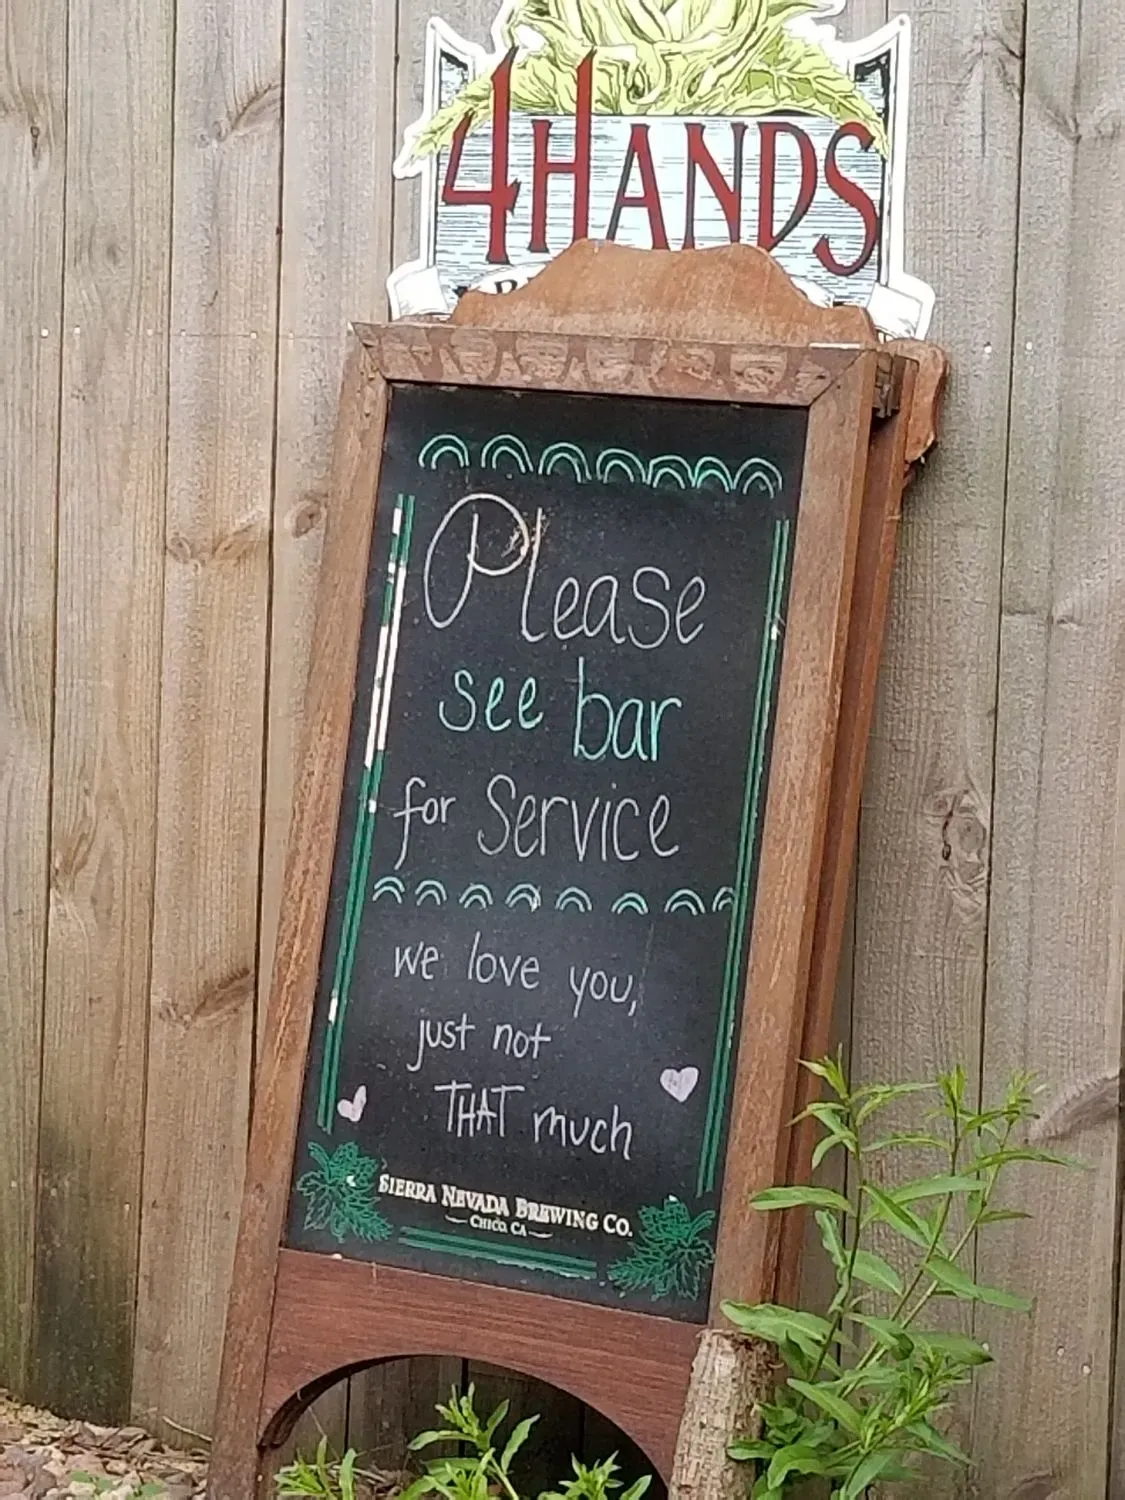 4HANDS
Please
see bar
for Service
we love you,
just not
THAT much
SIERRA NEVADA BREWING CO.
CHICO, CA